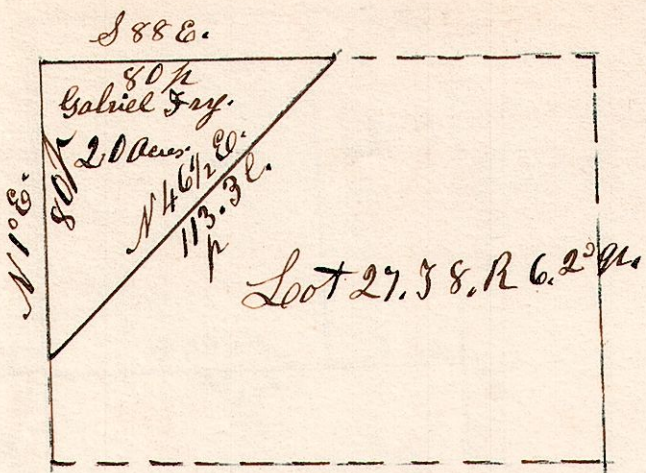 S 88 E.
80 p
Gabriel Fry.
20 Acres.
N 1° E.
80 p
N 46 1/2 E.
113. 3 l.
p
Loot 27. T 8. R 6. 2d qr.